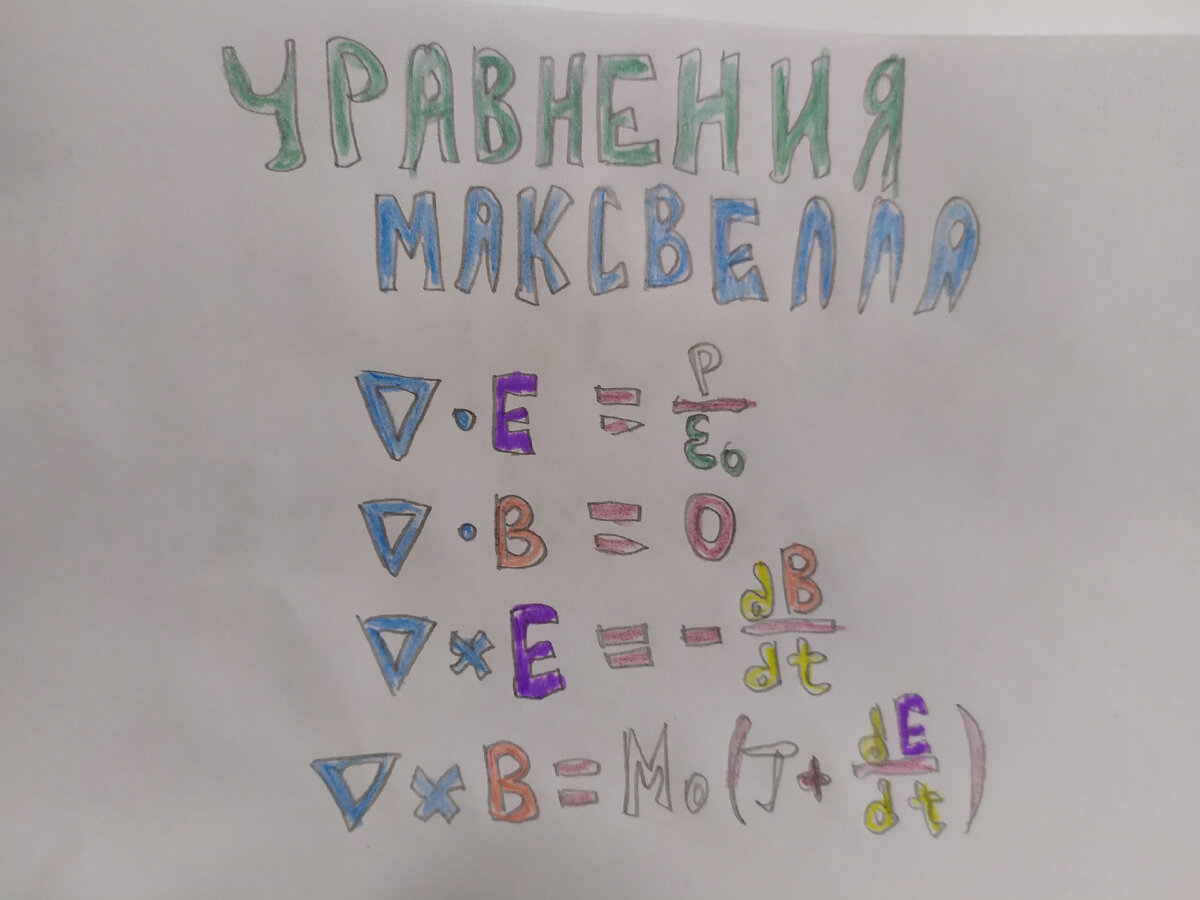 УРАВНЕНИЯ
МАКСВЕЛЛА
∇ · E = P / ε₀
∇ · B = 0
∇ × E = - dB / dt
∇ × B = M₀ (J + dE / dt)